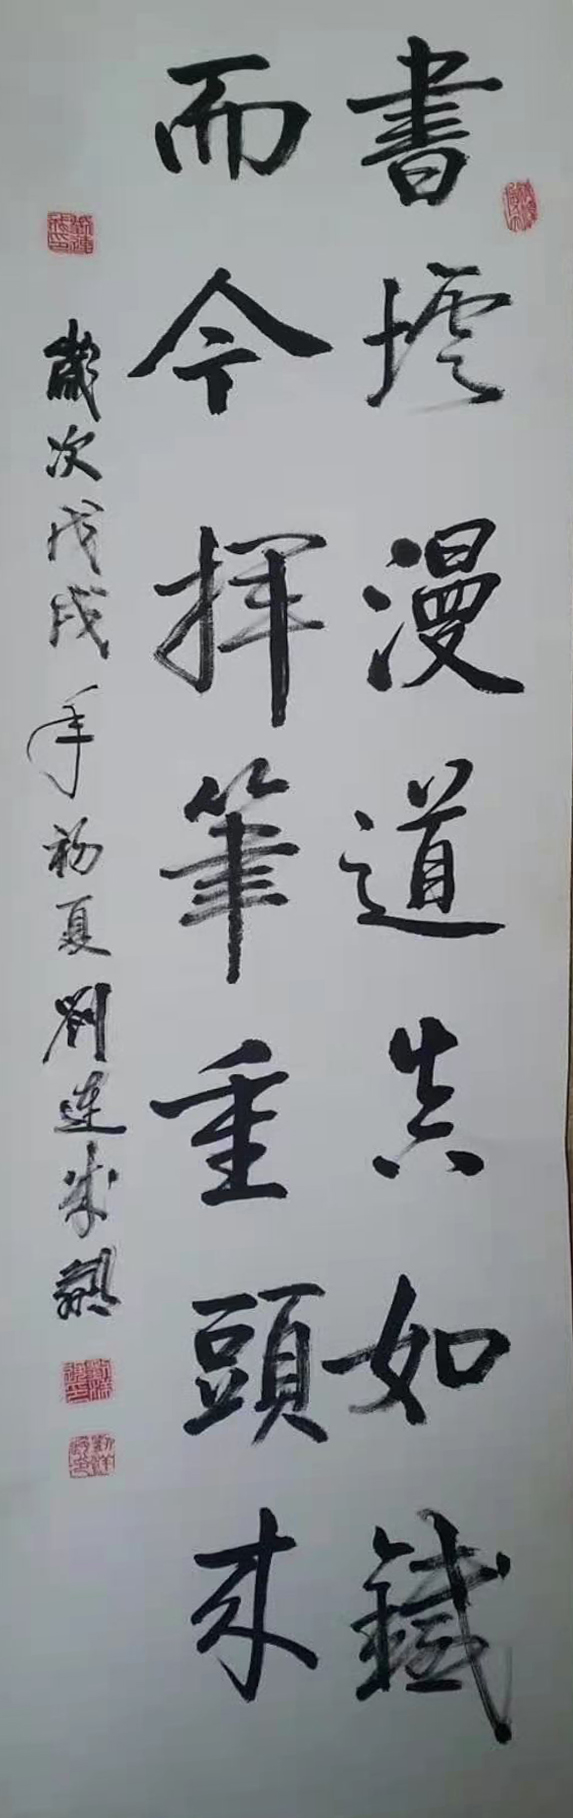 書壇漫道真如鐵
而今揮筆重頭來
歲次戊戌年初夏劉連成